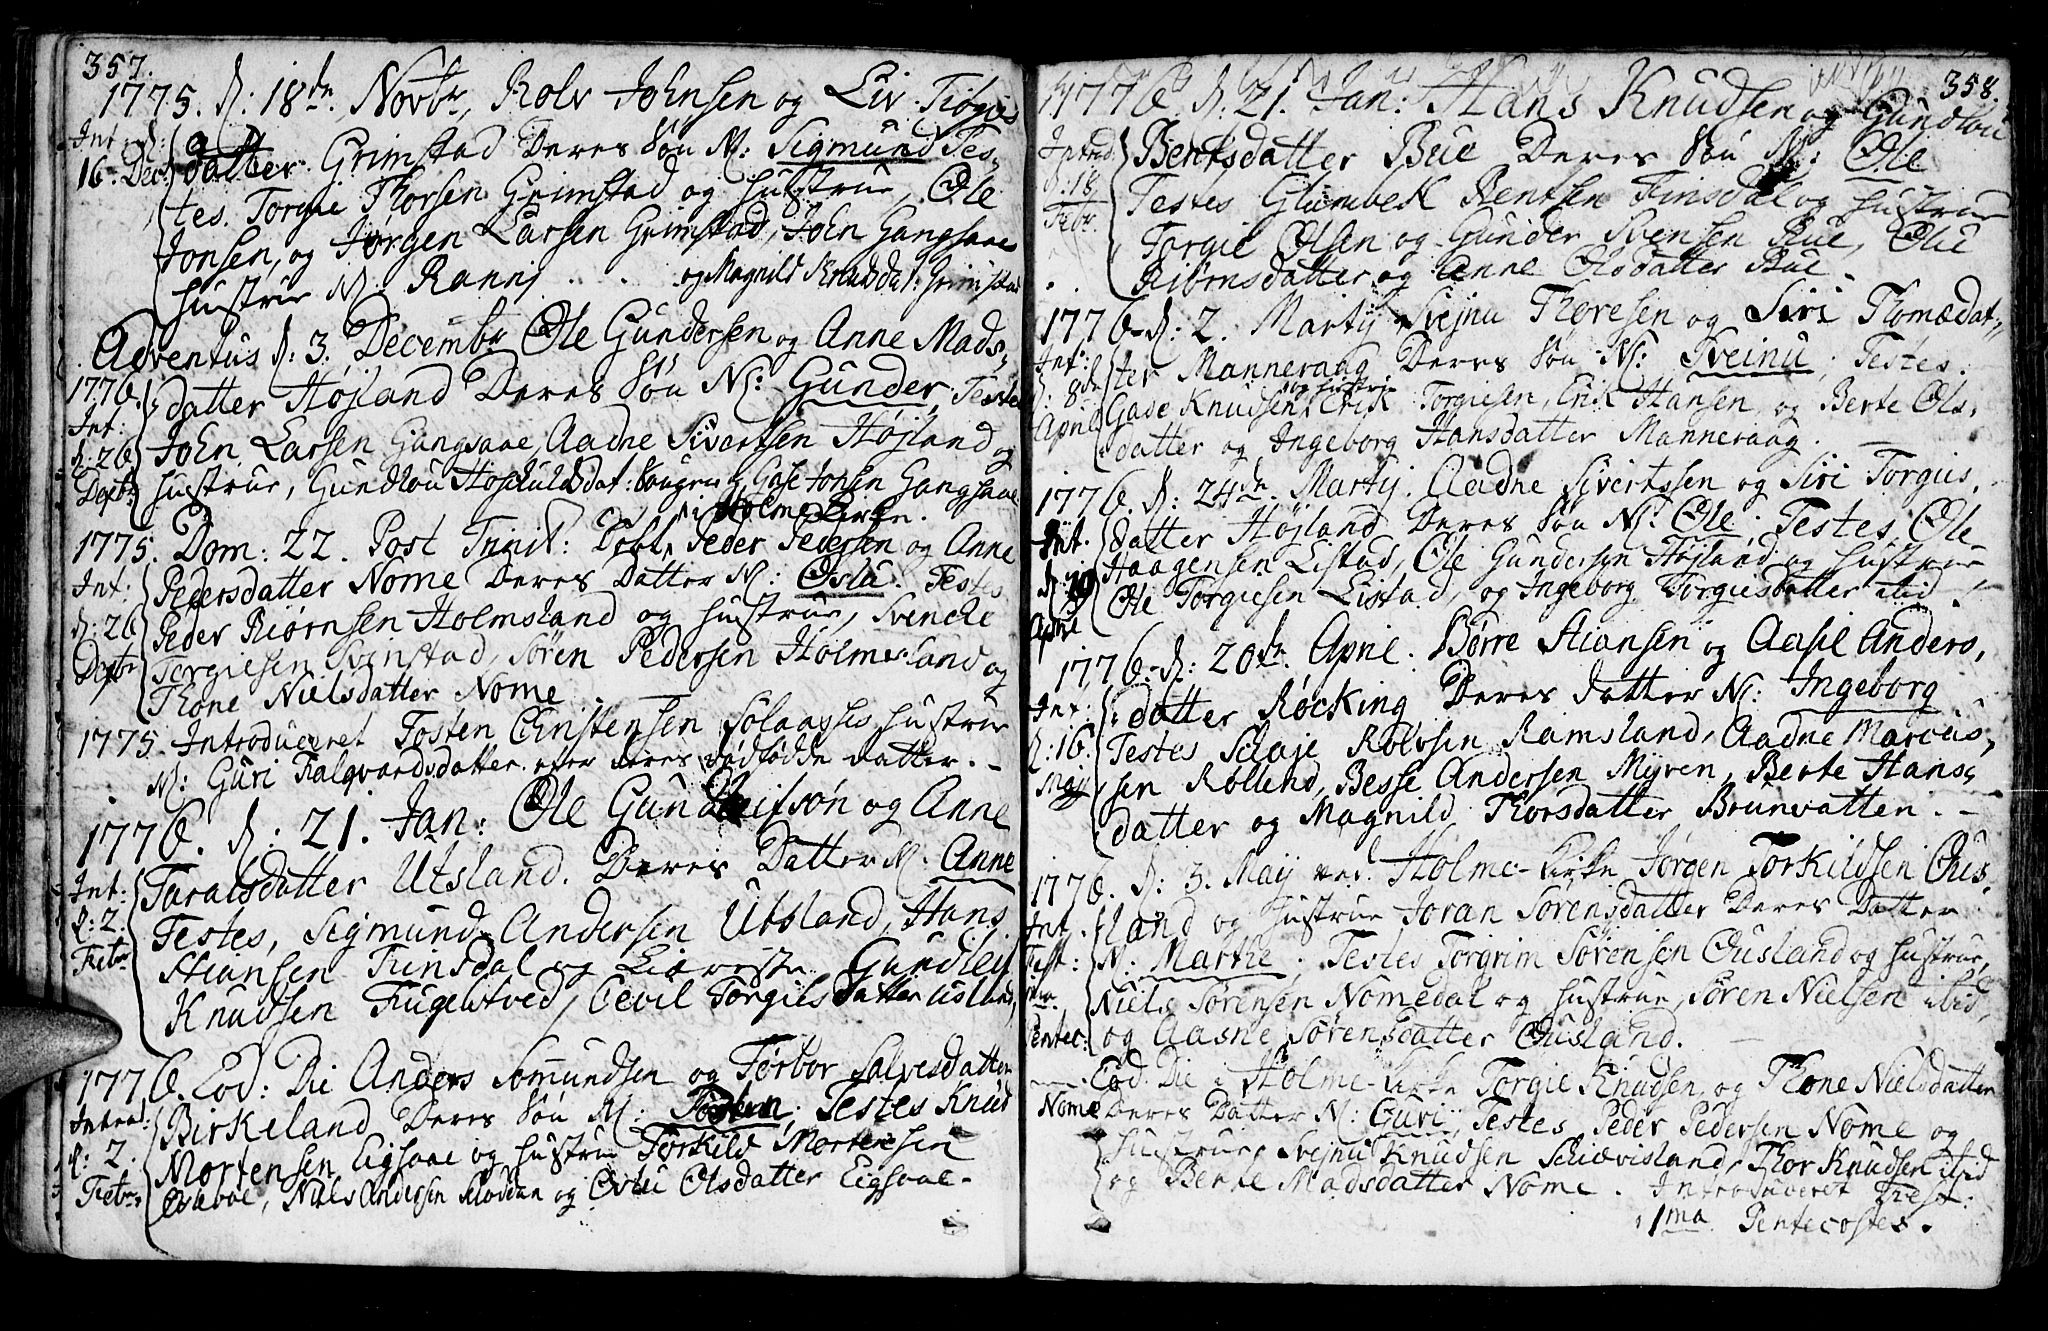 357.
1775. d: 18de Novbr, Rolv Johnsen og Liv Tiøgus
Introd: datter Grimstad Deres Søn N: Sigmund Tes-
16. Decbr tes. Torgie Thorsen Grimstad og hustrue, Ole
Jonsen, og Jørgen Larsen Grimstad, John Gangsaae
hustrue N. Ranni . . . og Magnild Knudsdat: Grimstad
Adventus d: 3. Decembr Ole Gundersen og Anne Mads-
1776. datter Højland Deres Søn N: Gunder. Testes
Int: John Larsen Gangsaae, Aadne Sivertsen Højland og
d: 26 hustrue, Gundlou Hoskuldsdat: Gase Jonsen Gangsaae
Decbr i Holme Kirke.
1775. Dom: 22. Post Trinit: Døbt, Peder Pedersen og Anne
Int: Pedersdatter Nome Deres Datter N: Oslu. Testes
d: 26 Peder Biørnsen Holmsland og hustrue, Svencke
Decbr Torgiesen Svenstad, Søren Pedersen Holmesland og
Thone Nielsdatter Nome
1775. Introduceret Tosten Christensen Solaases hustrue
N: Guri Halqvardsdatter efter deres dødfødde datter. -
1776. d: 21. Jan: Ole Gundleifsøn og Anne
Int: Taraldsdatter Utsland. Deres Datter N. Anne
d: 2. Testes, Sigmund Andersen Utsland, Hans
Febr Stiansen Finsdal og Gundleif
Knudsen Fugelstved, Cevil Torgilsdatter Usland,
1776. Eod: Die Anders Somundsen og Torbor Salvesdatter
Introd: Birkeland Deres Søn N. Tosten; Testes Knud
d: 2. Mortensen Eigsaae og hustrue Torkild Mortensen
Febr: Niels Andersen og Oslu Olsdatter Eigsaae.
358.
1776 d. 21. Jan: Hans Knudsen og Gundlou
Introd. Bentsdatter Bue Deres Søn N: Ole
d: 18 Testes Glumbek Bentsen Finsdal og hustrue
Febr. Torgie Olsen og Gunder Svensen Bue, Olu
Biørnsdatter og Anne Olsdatter Bue.
1776. d: 2. Martij Svejnu Thoresen og Siri Thomædat-
Int: ter Manneraag Deres Søn N: Sveinu, Testes.
d: 8de Gade Knudsen og hustrue Erik Torgiesen, Erik Hansen, og Berte Ols-
April datter og Ingeborg Hansdatter Manneraag.
1776. d: 24de Martij. Aadne Sivertssen og Siri Torgius,
Int. datter Højland Deres Søn N: Ole; Testes, Ole
d: 19 Haagensen Listad, Ole Gundersen Højland og hustrue,
April Ole Torgiesen Listad, og Ingeborg Torgiusdatter ibid.
1776. d: 20de April. Børre Stiansen og Aasil Anders,
Int. datter Røcking Deres datter N: Ingeborg
d: 16. Testes Schaje Rolvsen Ramsland, Aadne Marcus-
Maij sen Rollend, Besse Andersen Myren, Berte Hans-
datter og Magnild Thorsdatter Brunvatten. -
1776. d: 5. Maij ved Holme-Kirke Jørgen Torkildsen Ous-
Int. land og hustrue Joran Sørensdatter Deres Datter
Fest: N. Marthe; Testes Torgrim Sørensen Ousland og hustrue,
Niels Sørensen Nomedal og hustrue, Søren Nielsen ibid,
Pentec: og Aasne Sørensdatter Ousland.
Eod. Die i Holme-Kirke Torgie Knudsen og Thone Nielsdatter
Nome Deres Datter N: Guri, Testes, Peder Pedersen Nome og
hustrue, Svejnu Knudsen Schiævisland, Thor Knudsen ibid
og Berte Madsdatter Nome. Introduceret Fest:
1ma Pentecostes.